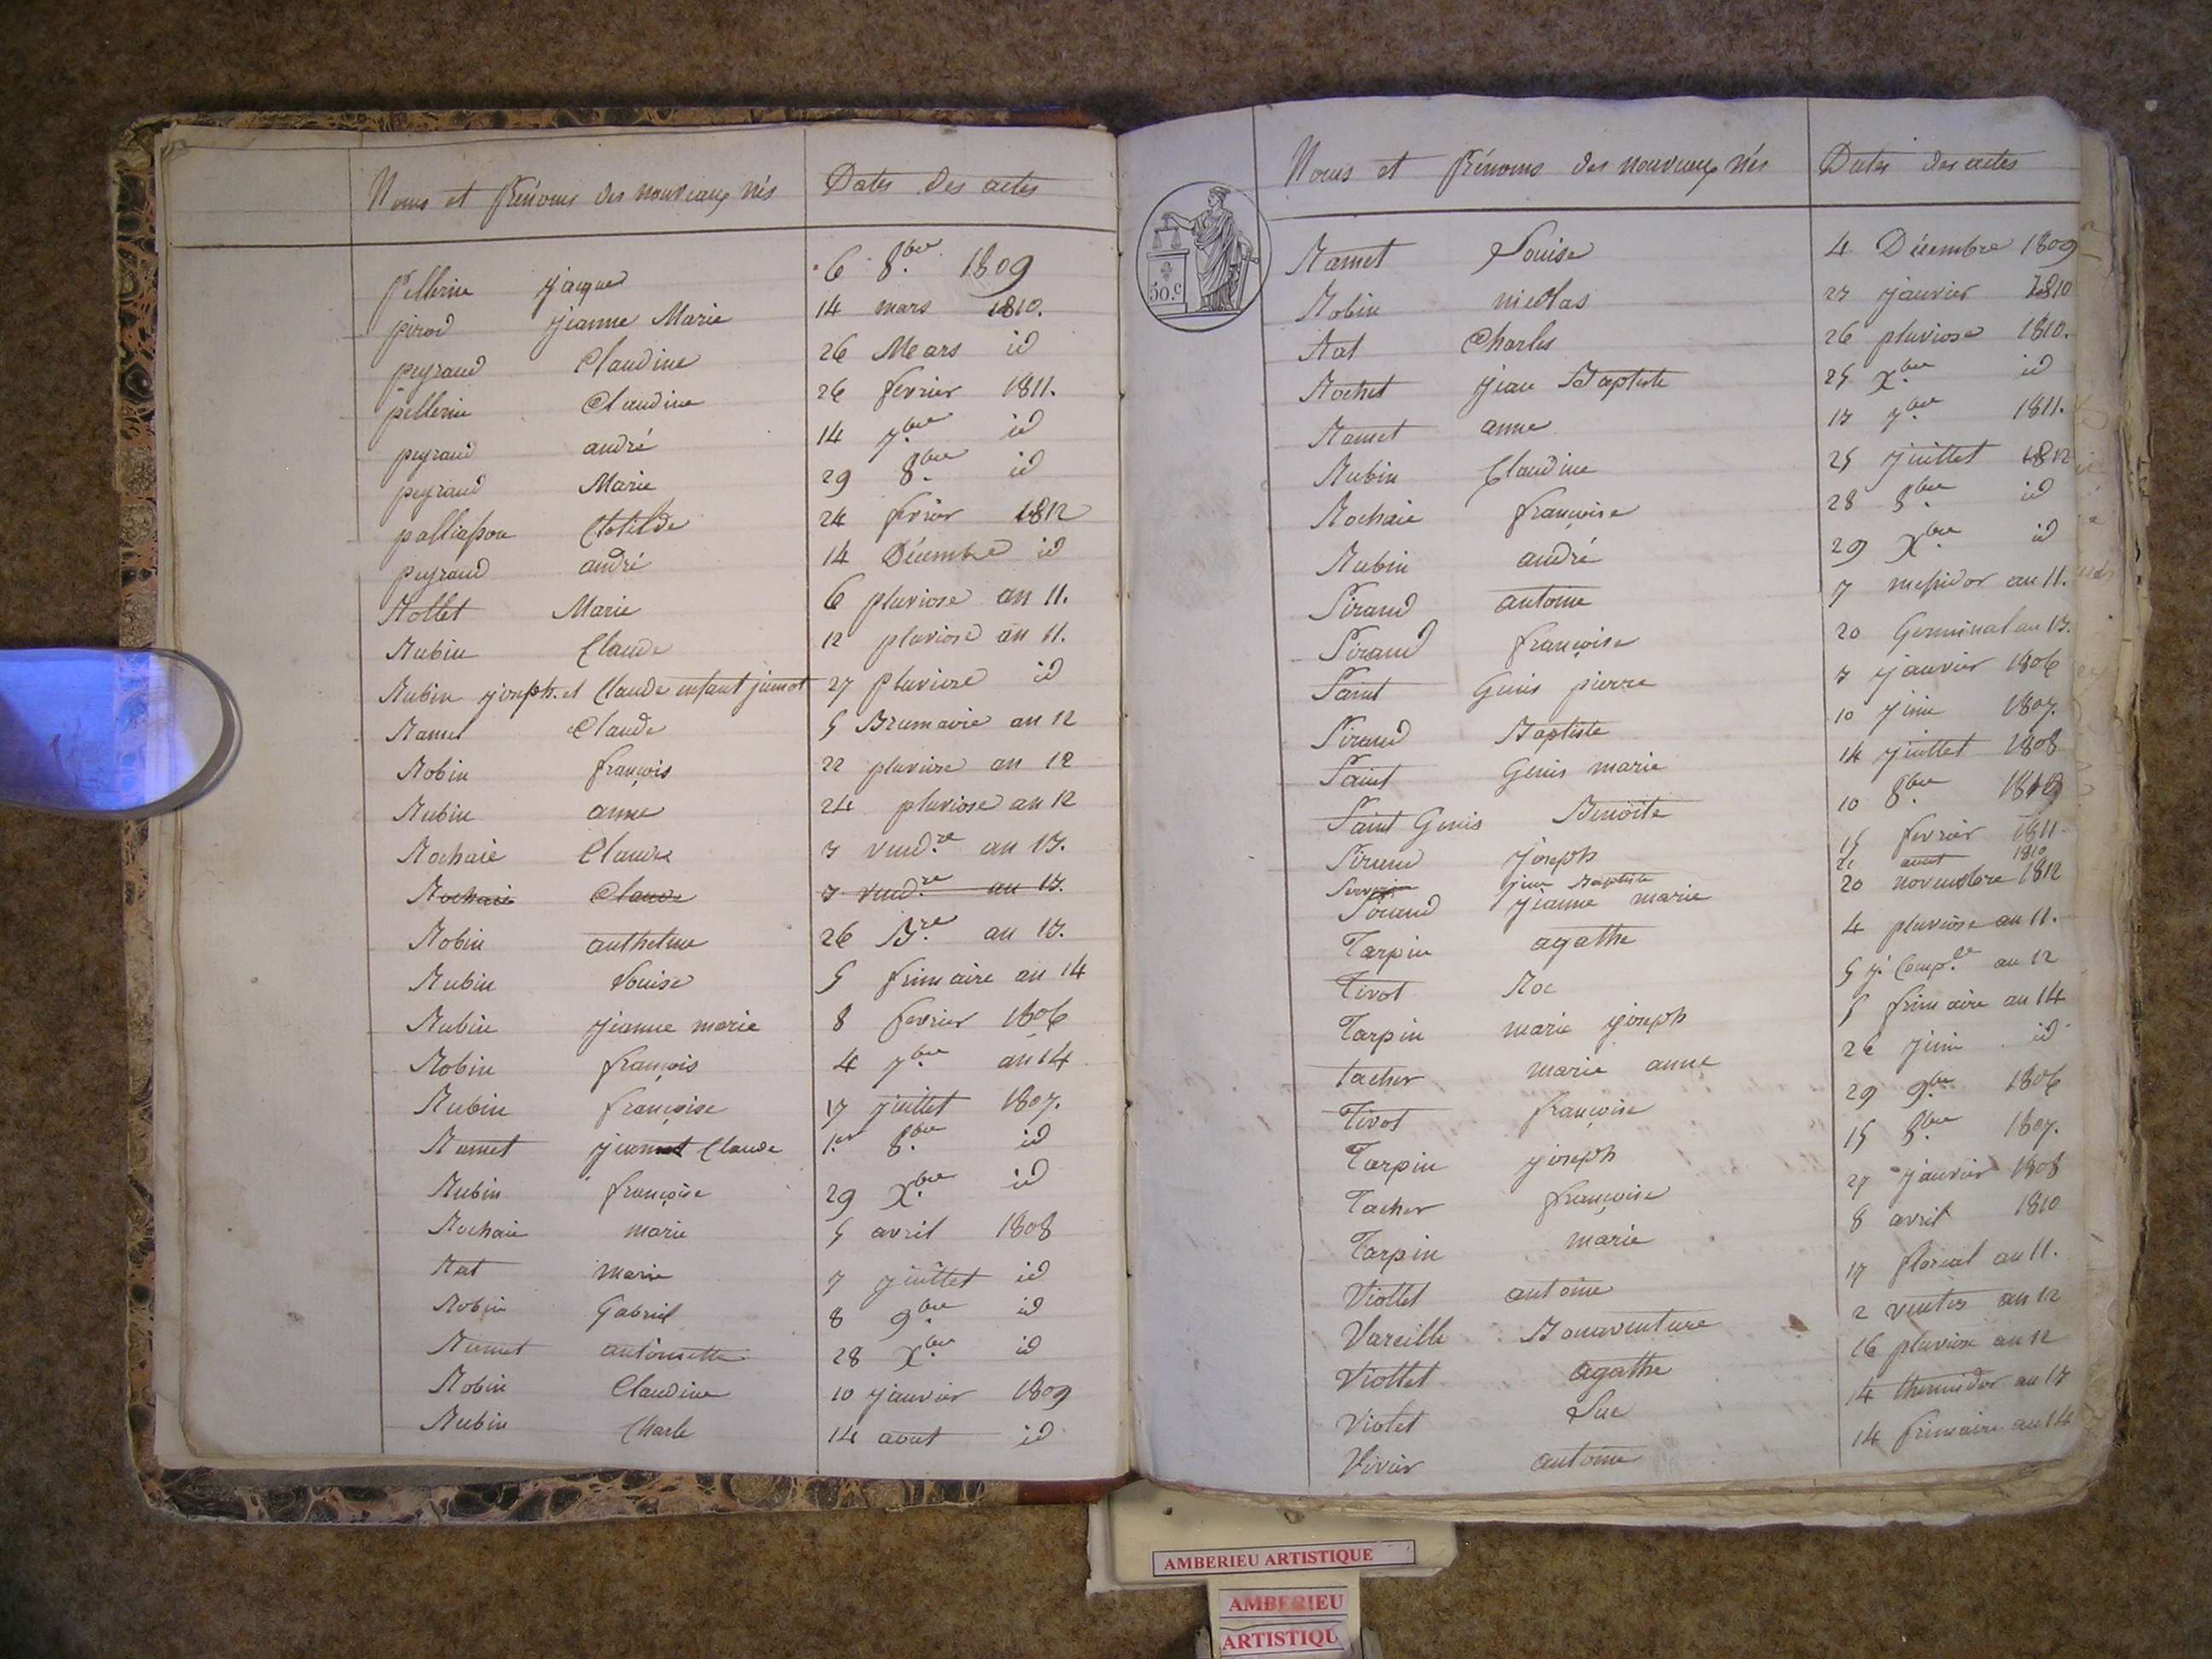 Noms et Prénoms des nouveaux nés Dates des actes
Pellerin jacque 6 8.bre 1809
pirod jeanne Marie 14 mars 1810.
peyraud Claudine 26 Mars id
pellerin Claudine 26 fevrier 1811.
peyraud andré 14 7.bre id
peyraud Marie 29 8.bre id
palliasson Clotilde 24 fevrier 1812
peyraud andré 14 Décembre id
Rollet Marie 6 pluviose an 11.
Rubin Claude 12 pluviose an 11.
Rubin joseph et Claude enfant jumot 27 pluviose id
Ramet Claude 5 Brumaire an 12
Robin françois 22 pluviose an 12
Rubin anne 24 pluviose an 12
Rochaie Claude 3 vend.re an 13.
Rochaie Claude 3 vend.re an 13.
Robin anthelme 26 B.re an 13.
Rubin Louise 5 frimaire an 14
Rubin jeanne marie 8 fevrier 1806
Robin françois 4 7.bre an 14
Rubin françoise 17 juillet 1807.
Ramet jean Claude 1.er 8.bre id
Rubin françoise 29 X.bre id
Rochaie marie 5 avril 1808
Rat marie 7 juillet id
Robin Gabriel 8 9.bre id
Ramet antoinette 28 X.bre id
Robin Claudine 10 janvier 1809
Rubin Charle 14 aout id
Noms et Prénoms des nouveaux nés Dates des actes
50.c
Ramet Louise 4 Décembre 1809
Robin nicolas 27 janvier 1810
Rat Charles 26 pluviose 1810.
Rochet jean Baptiste 25 X.bre id
Ramet anne 17 7.bre 1811.
Rubin Claudine 25 juillet 1812
Rochaie françoise 28 8.bre id
Rubin andré 29 X.bre id
Siraud antoine 7 messidor an 11.
Siraud françoise 20 Germinal an 13.
Saint Genis pierre 3 janvier 1806
Siraud Baptiste 10 juin 1807.
Saint Genis marie 14 juillet 1808
Saint Genis Benoite 10 8.bre
Siraud joseph 15 fevrier 1811.
jean Baptiste aout 1810
Siraud jeanne marie 20 novembre 1812
Tarpin agathe 4 pluviose an 11.
Tivot Roc 5 j. Comp.re an 12
Tarpin marie joseph 5 frimaire an 14
tacher marie anne 26 juin id
Tivot françoise 29 9.bre 1806
Tarpin joseph 15 8.bre 1807.
Tacher françoise 27 janvier 1808
Tarpin marie 8 avril 1810
Viollet antoine 17 floreal an 11.
Vareille Bonaventure 2 ventos an 12
Viollet agathe 16 pluviose an 12
Violet Luc 14 thermidor an 13
Vivier antoine 14 frimaire an 14
AMBERIEU ARTISTIQUE
AMBERIEU
ARTISTIQU